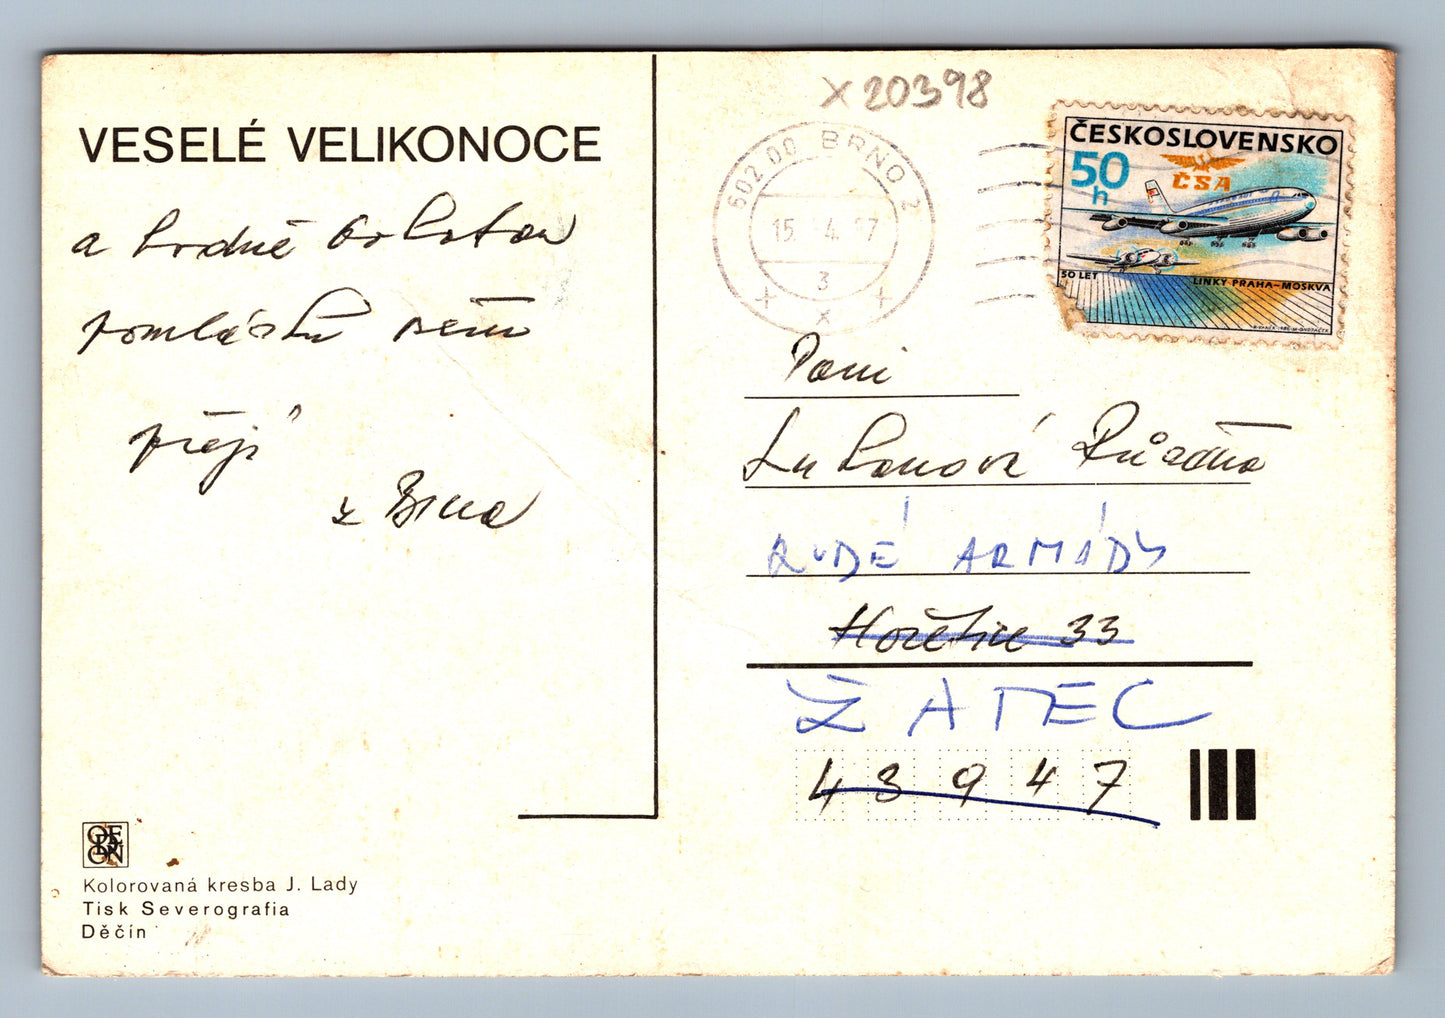 x 20398
VESELÉ VELIKONOCE
a hodně bohatou
pomlázku všem
přejí
z Brna
602 00 BRNO 2
15. 4. 87
3
x x x
ČESKOSLOVENSKO
50 h
ČSA
50 LET LINKY PRAHA-MOSKVA
Paní
Lukanová Růžena
RUDÉ ARMÁDY
Hořetice 33
ŽATEC
43947
ODEON
Kolorovaná kresba J. Lady
Tisk Severografia
Děčín